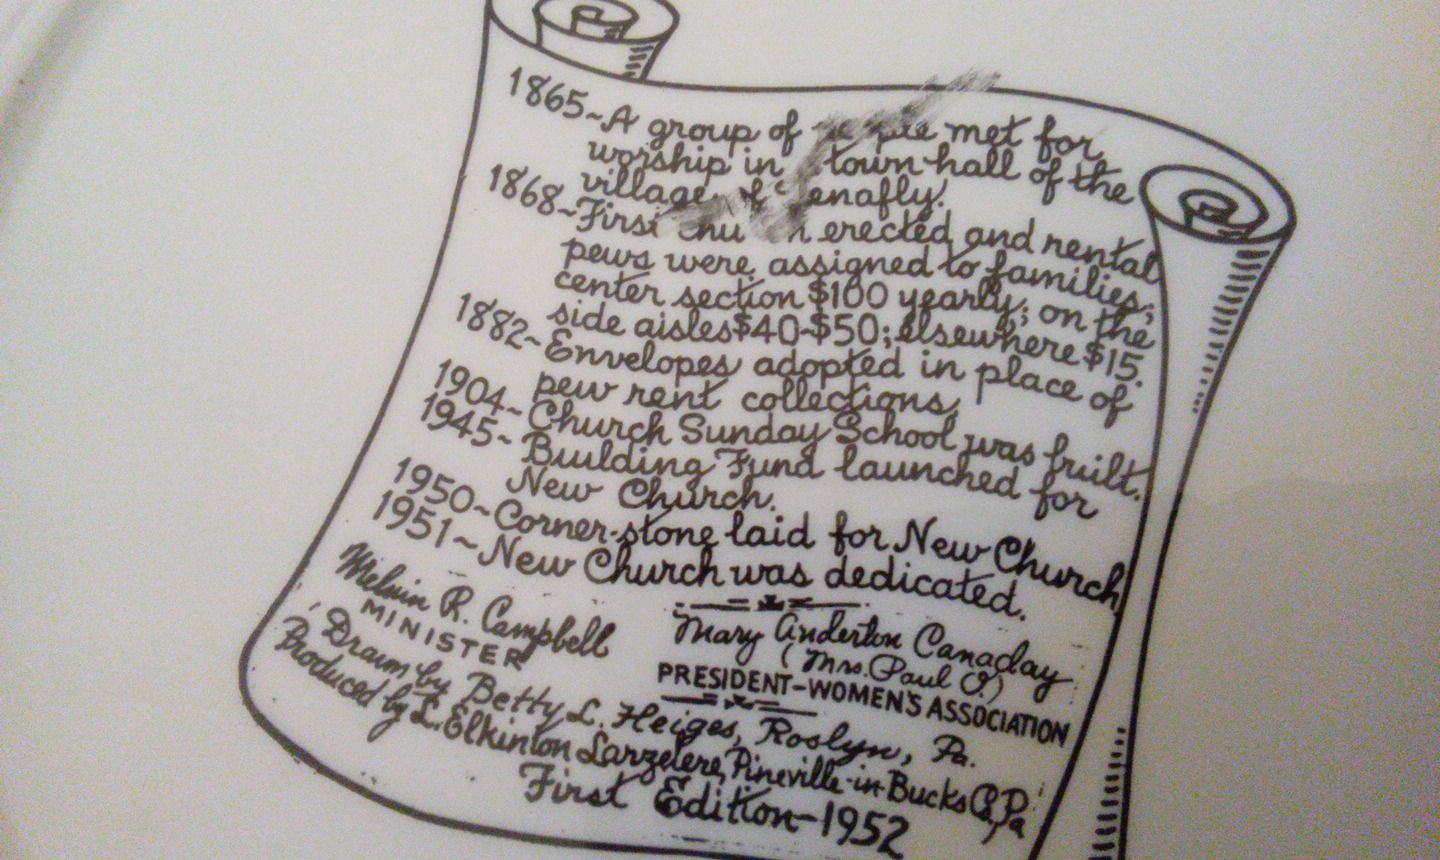 1865~A group of people met for
worship in town hall of the
village of Tenafly.
1868~First church erected and rental
pews were assigned to families;
center section $100 yearly; on the
side aisles $40-$50; elsewhere $15.
1882~Envelopes adopted in place of
pew rent collections.
1904~Church Sunday School was built.
1945~Building Fund launched for
New Church.
1950~Corner-stone laid for New Church
1951~New Church was dedicated.
Melvin R. Campbell
MINISTER
Mary Anderton Canaday
(Mrs. Paul O.)
PRESIDENT-WOMEN'S ASSOCIATION
Drawn by Betty L. Heiges, Roslyn, Pa.
Produced by L. Elkinton Larzelere, Pineville-in-Bucks Co, Pa
First Edition-1952